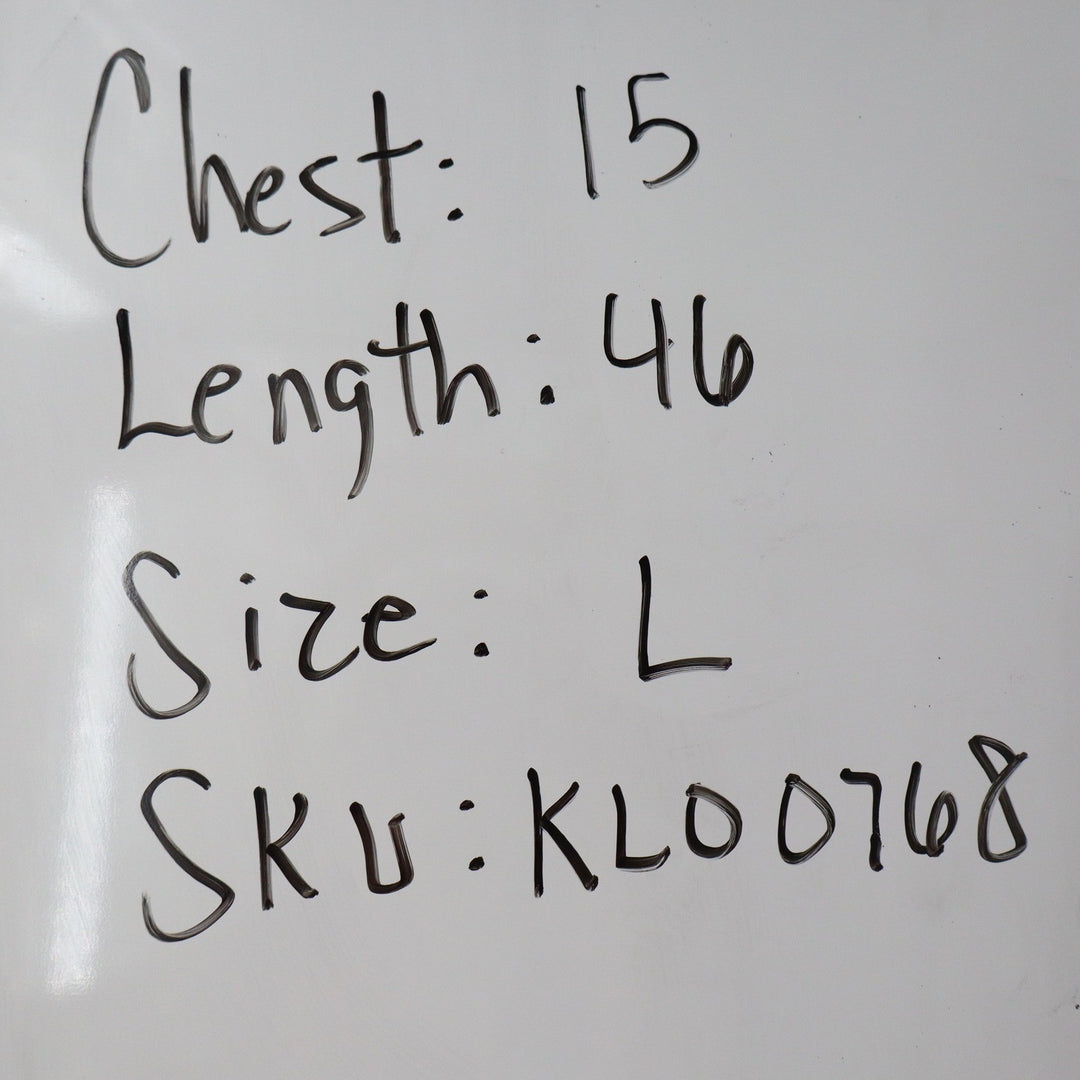 Chest: 15
Length: 46
Size: L
SKU: KL00768